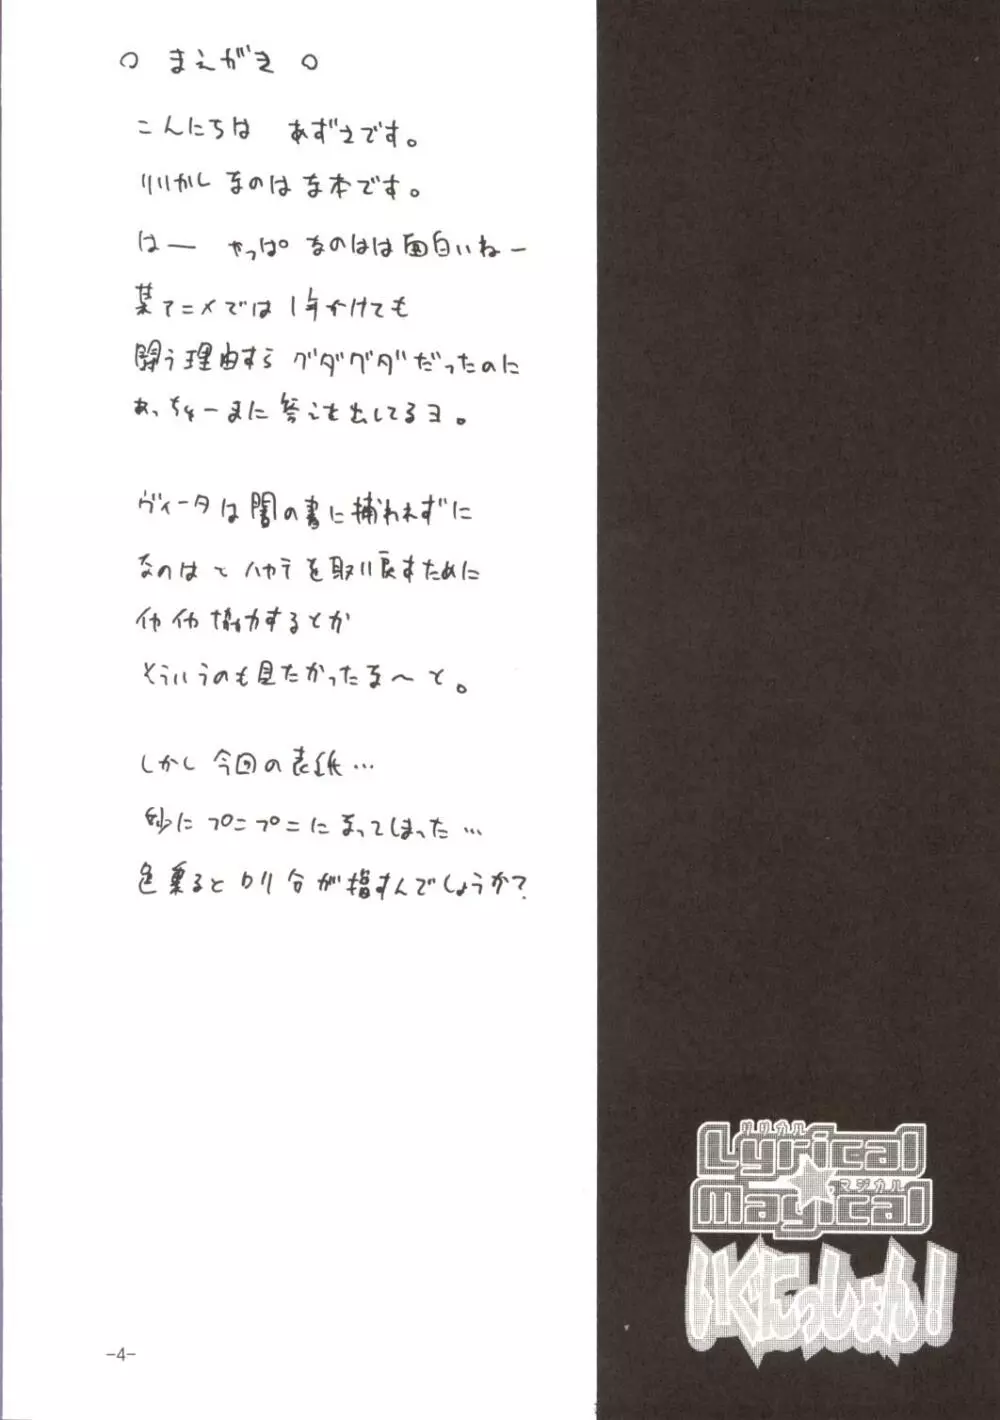 ○ まえがき ○
こんにちは あずまです。
リリカル なのはな本です。
はー やっぱ なのはは面白いねー
某アニメでは 1年かけても
闘う理由すら グダグダだったのに
あっちゅーまに答えを出してるヨ。
ヴィータは闇の書に捕われずに
なのはと ハヤテを取り戻すために
イヤイヤ協力するとか
そういうのも見たかったな～と。
しかし 今回の表紙…
妙にプニプニになってしまった…
色塗ると ロリ分が増すんでしょうか?
リリカル
Lyrical
マジカル
Magical
-4-